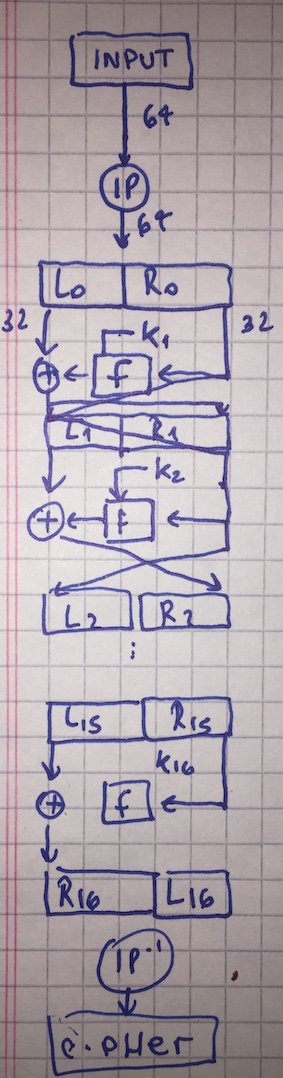 INPUT
64
IP
64
L0 R0
32 32
K1
+ f
L1 R1
K2
+ f
L2 R2
⋮
L15 R15
K16
+ f
R16 L16
IP-1